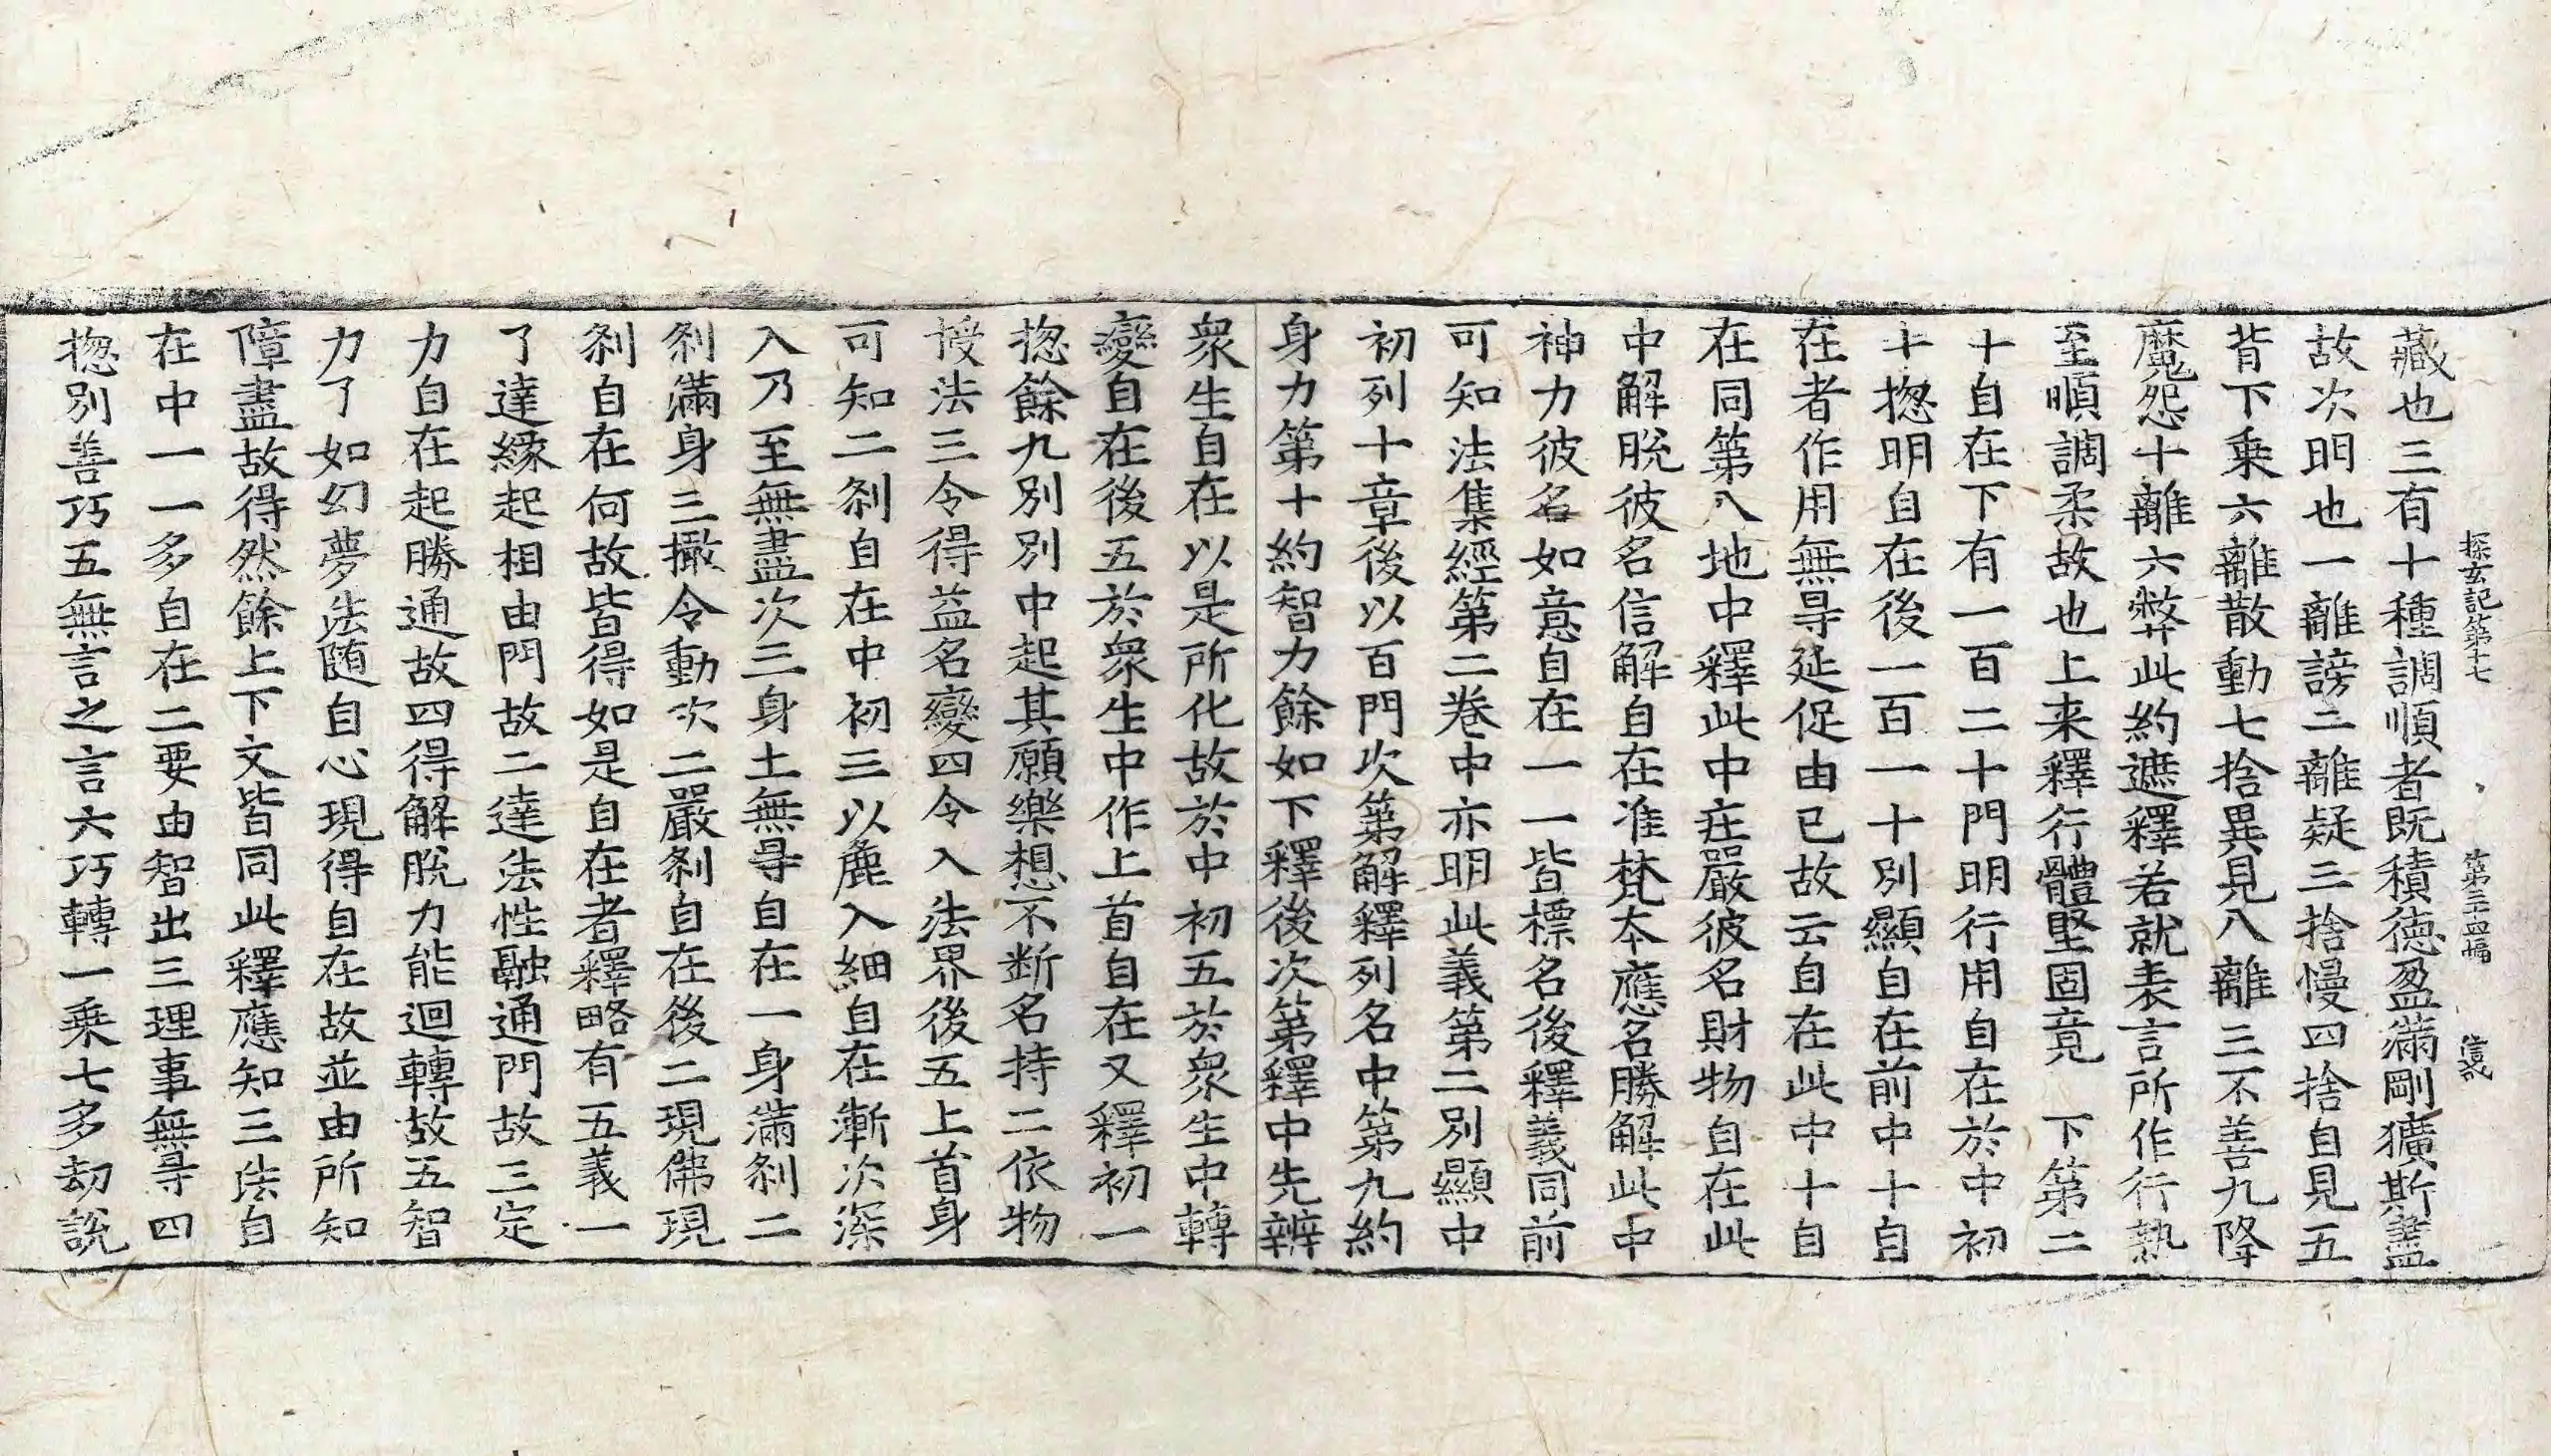 探玄記第十七 第二十四幅
藏也三有十種調順者既積德盈滿剛獷斯盡
故次明也一離謗二離疑三捨慢四捨自見五
背下乗六離散動七捨異見八離三不善九降
魔怨十離六弊此約遮釋若就表言所作行熟
至順調柔故也上来釋行體堅固竟 下第二
十自在下有一百二十門明行用自在於中初
十揔明自在後一百一十別顯自在前中十自
在者作用無㝵延促由已故云自在此中十自
在同第八地中釋此中庄嚴彼名財物自在此
中解脫彼名信解自在准梵本應名勝解此中
神力彼名如意自在一一皆標名後釋義同前
可知法集經第二卷中亦明此義第二別顯中
初列十章後以百門次第解釋列名中第九約
身力第十約智力餘如下釋後次第釋中先辨
衆生自在以是所化故於中初五於衆生中轉
變自在後五於衆生中作上首自在又釋初一
揔餘九別別中起其願樂想不断名持二依物
授法三令得益名變四令入法界後五上首身
可知二刹自在中初三以麁入細自在漸次深
入乃至無盡次三身土無㝵自在一身滿刹二
刹滿身三撒令動次二嚴刹自在後二現佛現
刹自在何故皆得如是自在者釋略有五義一
了達緣起相由門故二達法性融通門故三定
力自在起勝通故四得解脫力能迴轉故五智
力了如幻夢法随自心現得自在故並由所知
障盡故得然餘上下文皆同此釋應知三法自
在中一一多自在二要由智出三理事無㝵四
揔別善巧五無言之言六巧轉一乗七多劫說